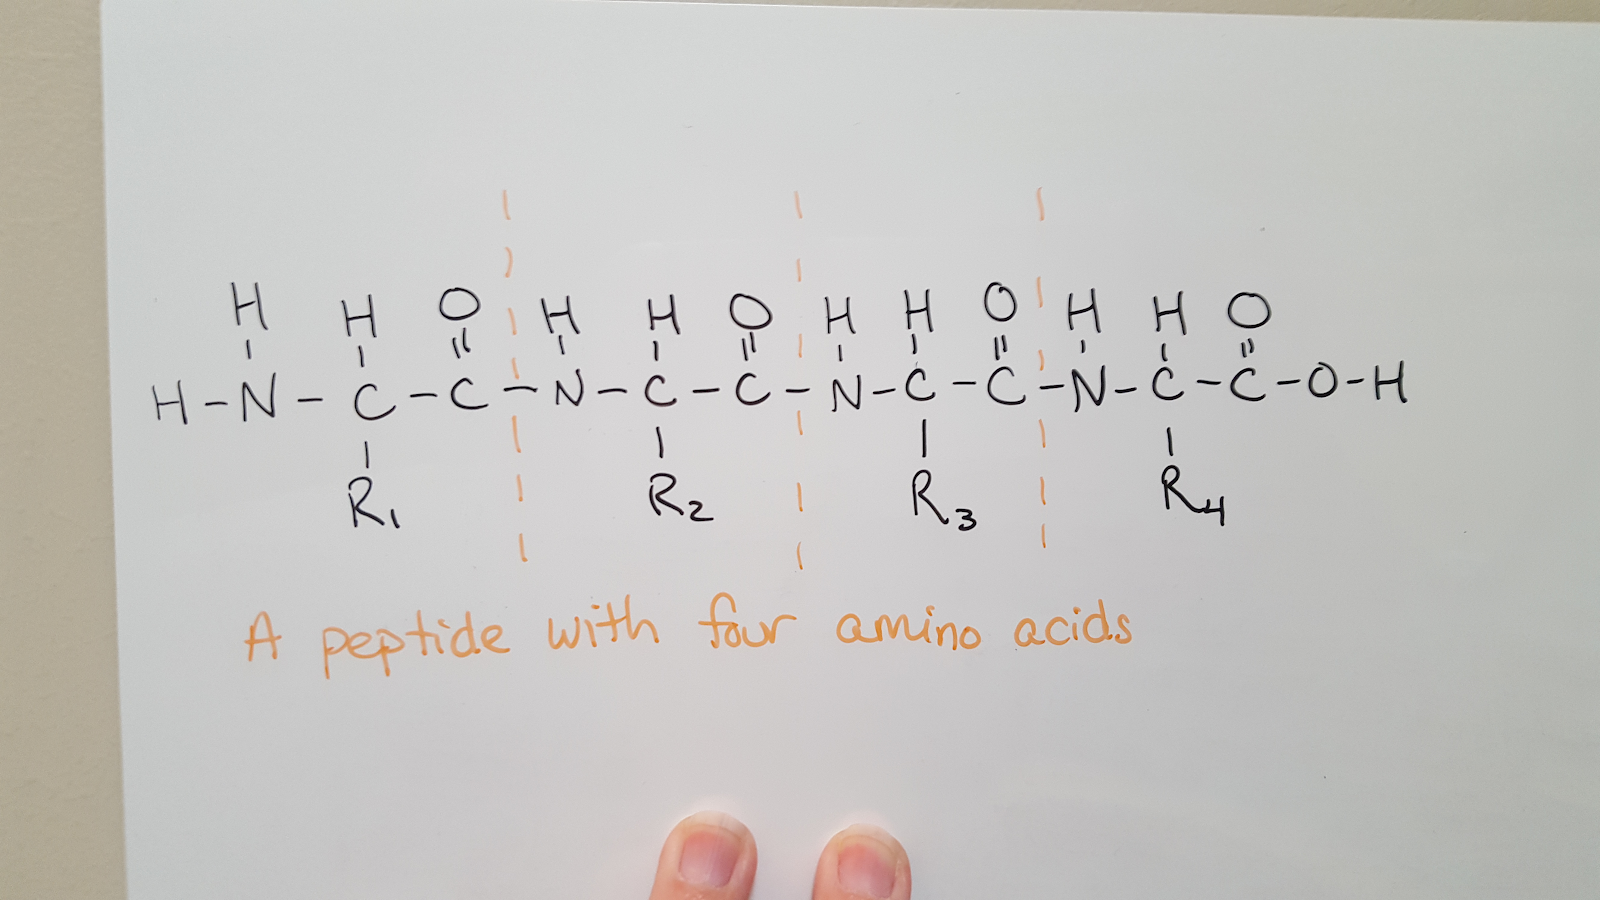 H H O H H O H H O H H O
H-N-C-C-N-C-C-N-C-C-N-C-C-O-H
R1 R2 R3 R4
A peptide with four amino acids